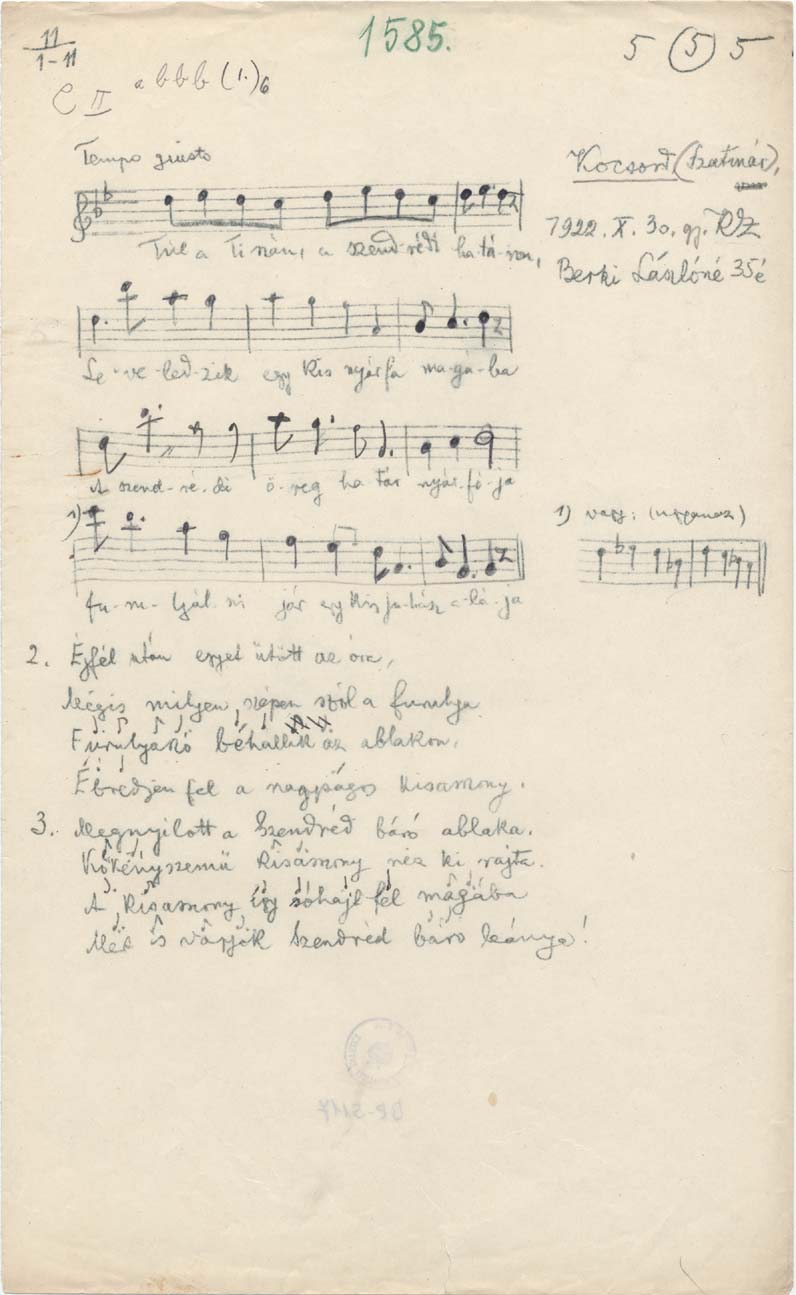 11
1-11
1585.
5 (5) 5
C II a b b b (1.) 6
Tempo giusto
Kocsord (Szatmár),
1922. X. 30. gy. RZ
Berki Lászlóné 35 é
Túl a Tiszán, a szend-rédi ha-tá-ron,
Le-ve-led-zik egy kis nyárfa ma-gá-ba
A szend-ré-di ö-reg ha tár nyár-fá-ja
1)
1) vagy: (ugyanaz)
fu-ru-lyál-ni jár egy kis ju-hász a-lá-ja
2. Éjfél után egyet ütött az óra,
Mégis milyen szépen szól a furulya
béhallik az ablakon,
Ébredjen fel a nagyságos kisasszony.
3. Megnyílott a Szendréd báró ablaka.
Kökényszemű kisasszony néz ki rajta.
A kisasszony így sóhajt fel magába
Mér is várjók Szendréd báró leánya!